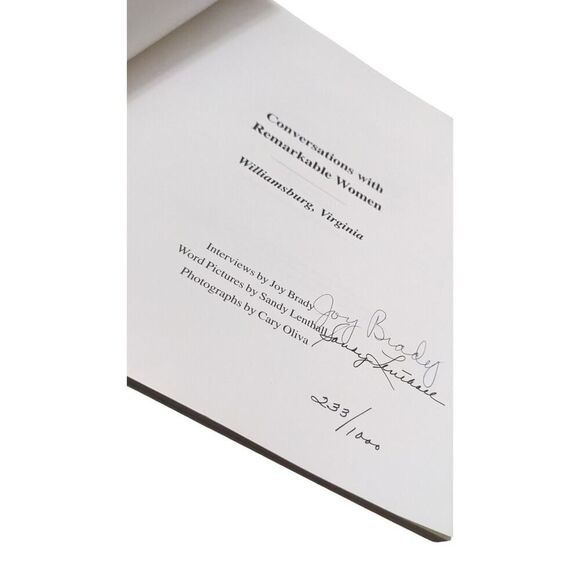 Conversations with
Remarkable Women
Williamsburg, Virginia
Interviews by Joy Brady
Word Pictures by Sandy Lenthall
Photographs by Cary Oliva
Joy Brady
Sandy Lenthall
233/1000